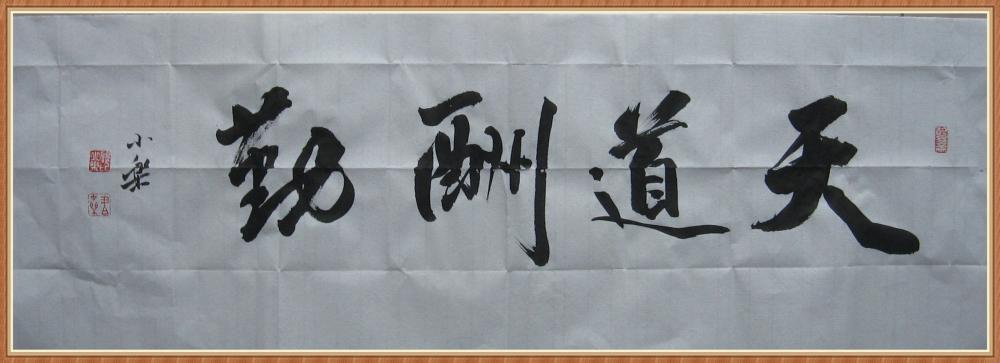 天道酬勤
小樂